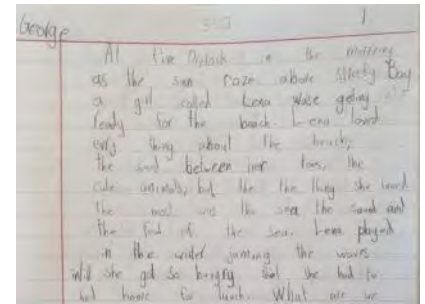 George 1
At five Oclock in the morning
as the sun roze above Streety Bay
a girl called Lena wase geting
ready for the beach. Lena loved
evry thing about the beach,
the sand between her toes, the
cute animals, but the the thing she loved
the most was the sea the sand and
the of the sea. Lena played
in the water juming the waves
intil she got so hungry that she had to
home for lunch. What are we